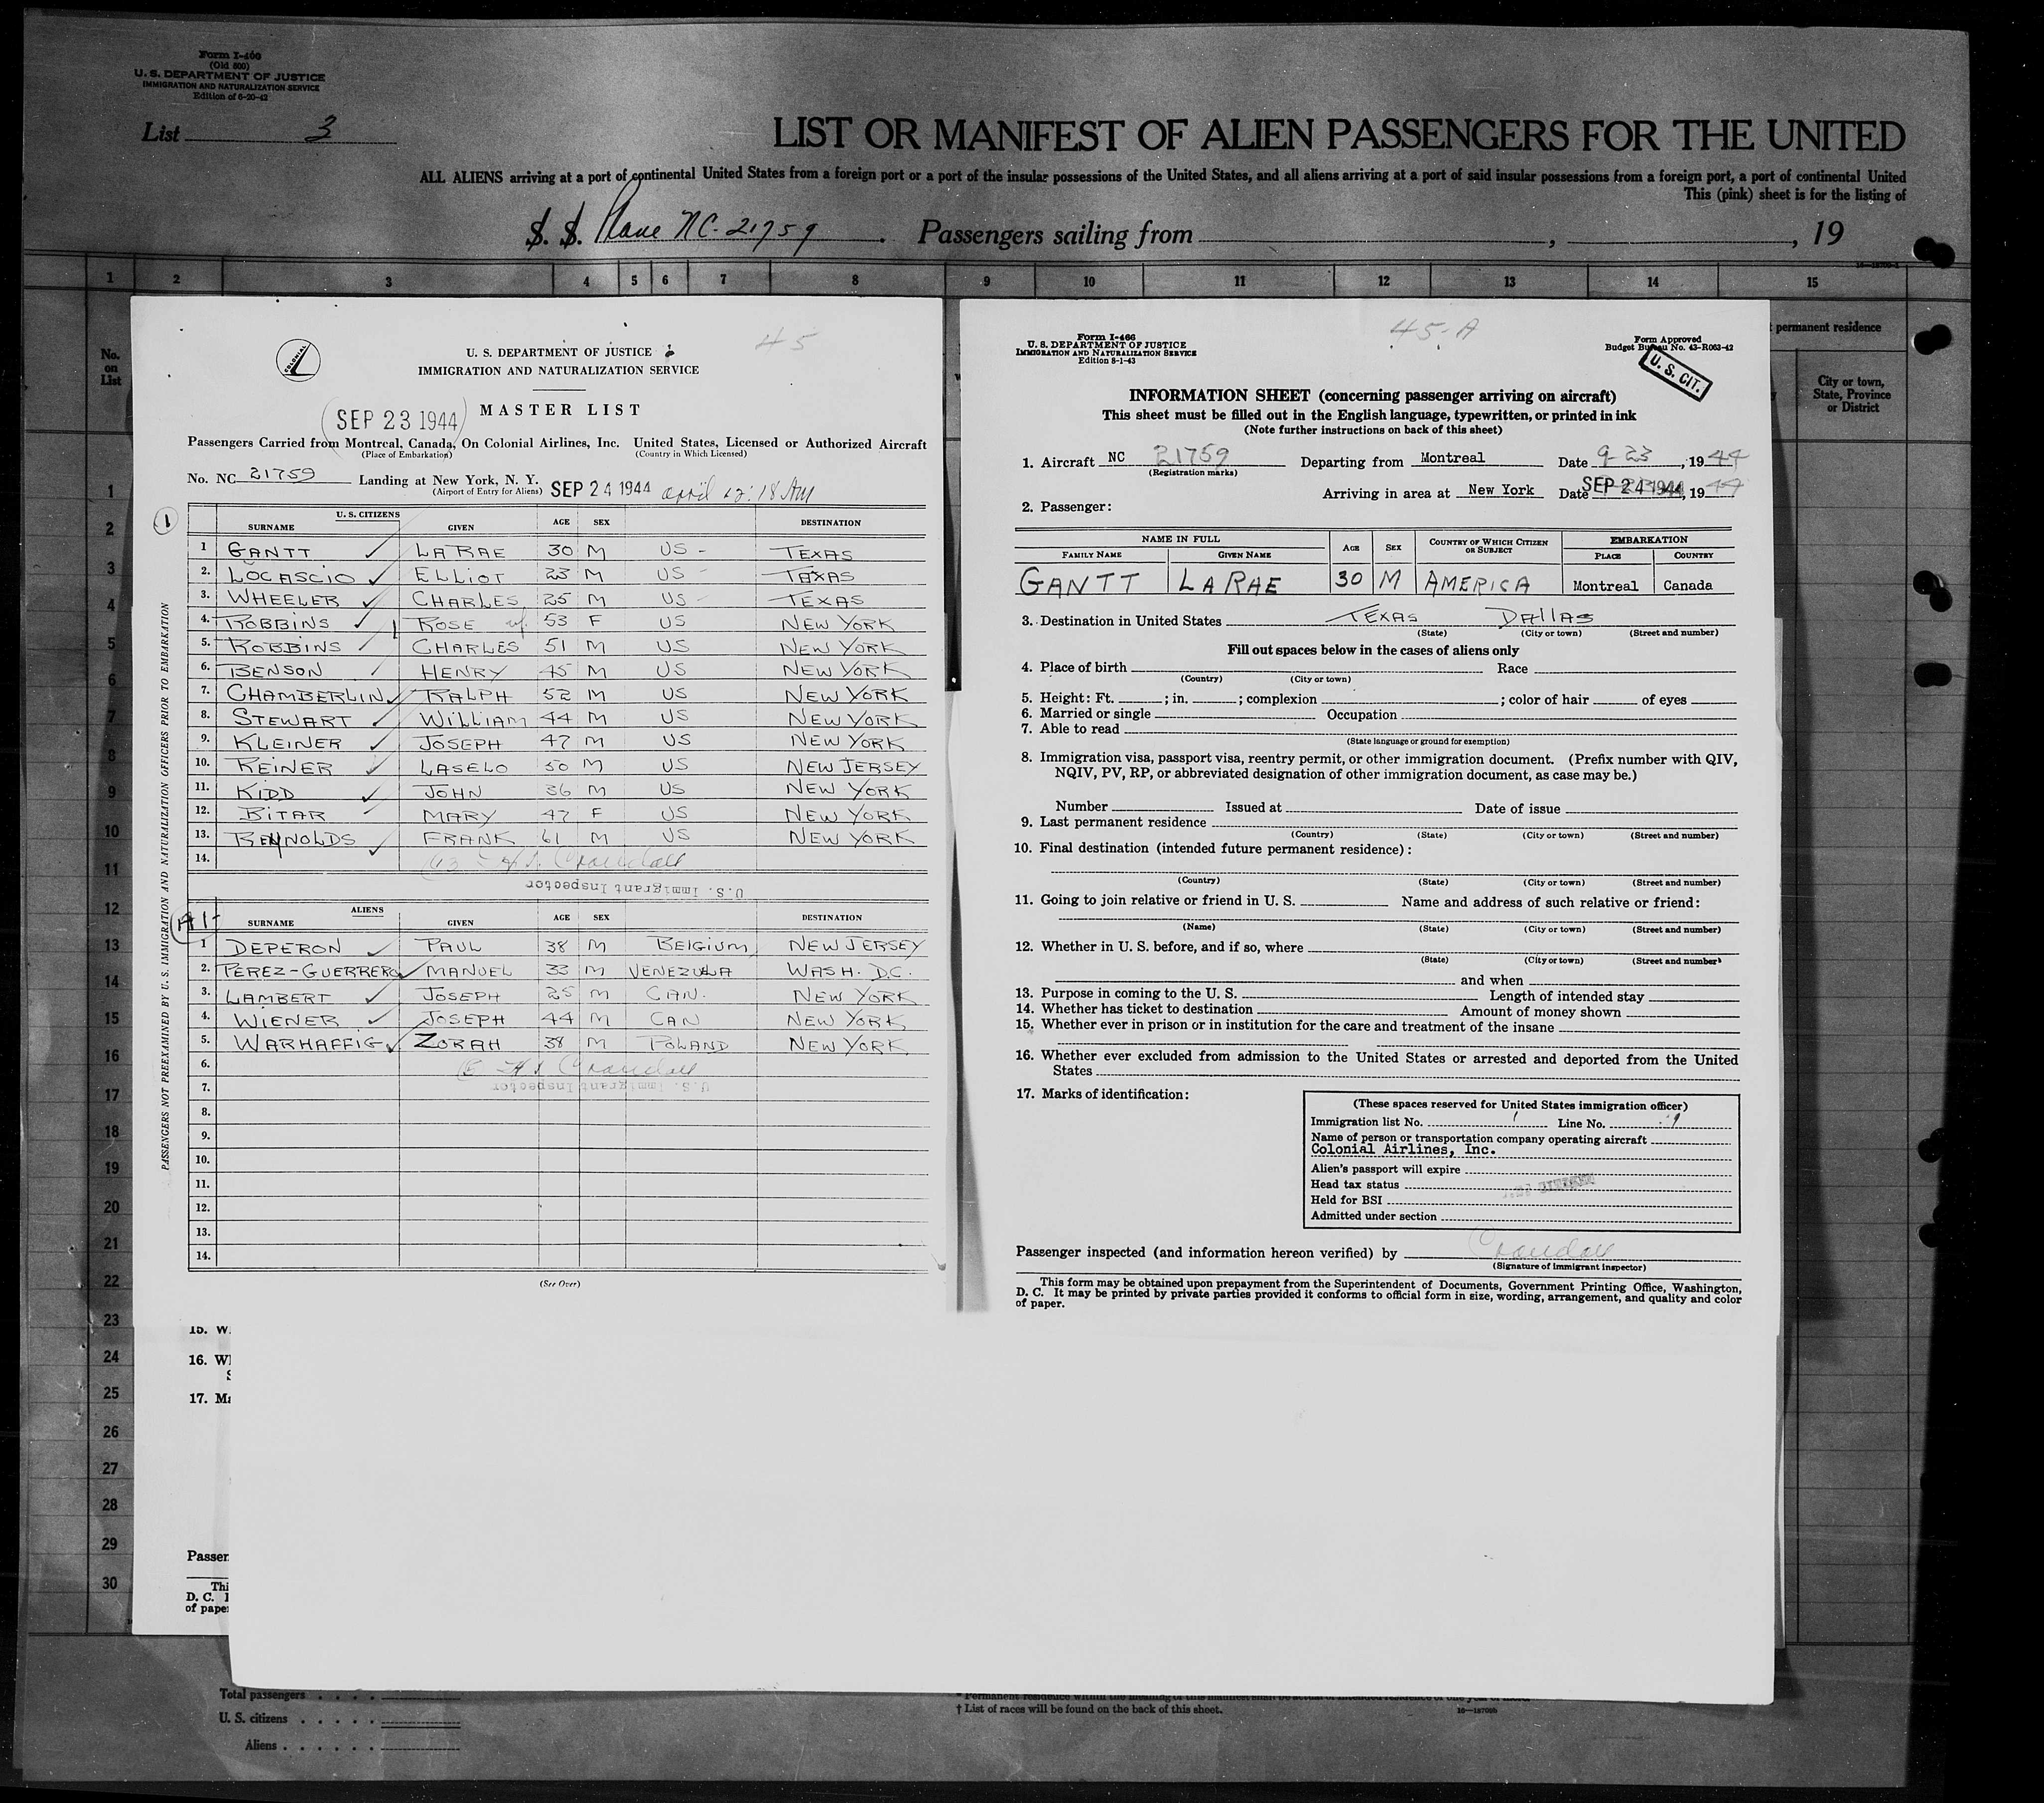 Form I-466
(Old 500)
U. S. DEPARTMENT OF JUSTICE
IMMIGRATION AND NATURALIZATION SERVICE
Edition of 6-20-42
List 3
LIST OR MANIFEST OF ALIEN PASSENGERS FOR THE UNITED
ALL ALIENS arriving at a port of continental United States from a foreign port or a port of the insular possessions of the United States, and all aliens arriving at a port of said insular possessions from a foreign port, a port of continental United
This (pink) sheet is for the listing of
S. S. Plane NC-21759 Passengers sailing from , , 19
1 2 3 4 5 6 7 8 9 10 11 12 13 14 15
No. on List
permanent residence
City or town, State, Province or District
1
2
3
4
5
6
7
8
9
10
11
12
13
14
15
16
17
18
19
20
21
22
23
24
25
26
27
28
29
30
COLONIAL
45
U. S. DEPARTMENT OF JUSTICE
IMMIGRATION AND NATURALIZATION SERVICE
SEP 23 1944
MASTER LIST
Passengers Carried from Montreal, Canada, On Colonial Airlines, Inc. United States, Licensed or Authorized Aircraft
(Place of Embarkation) (Country in Which Licensed)
No. NC 21759 Landing at New York, N. Y. SEP 24 1944 12:18 AM
(Airport of Entry for Aliens)
1
PASSENGERS NOT PREEXAMINED BY U. S. IMMIGRATION AND NATURALIZATION OFFICERS PRIOR TO EMBARKATION
U. S. CITIZENS
SURNAME GIVEN AGE SEX DESTINATION
1 GANTT LARAE 30 M US - TEXAS
2. LOCASCIO ELLIOT 23 M US - TAXAS
3. WHEELER CHARLES 25 M US - TEXAS
4. ROBBINS ROSE wf. 53 F US NEW YORK
5. ROBBINS CHARLES 51 M US NEW YORK
6. BENSON HENRY 45 M US NEW YORK
7. CHAMBERLIN RALPH 52 M US NEW YORK
8. STEWART WILLIAM 44 M US NEW YORK
9. KLEINER JOSEPH 47 M US NEW YORK
10. REINER LASELO 50 M US NEW JERSEY
11. KIDD JOHN 36 M US NEW YORK
12. BITAR MARY 47 F US NEW YORK
13. REYNOLDS FRANK 61 M US NEW YORK
14. 13 Crandall
U.S. Immigrant Inspector
A1-
ALIENS
SURNAME GIVEN AGE SEX DESTINATION
1 DEPERON PAUL 38 M BELGIUM NEW JERSEY
2. PEREZ-GUERRERO MANUEL 33 M VENEZULA WASH. D.C.
3. LAMBERT JOSEPH 25 M CAN. NEW YORK
4. WIENER JOSEPH 44 M CAN NEW YORK
5. WARHAFFIG ZORAH 38 M POLAND NEW YORK
6. Crandall
7. U.S. Immigrant Inspector
8.
9.
10.
11.
12.
13.
14.
(See Over)
15. W
16. Wl
S
17. Ma
Passen
Thi
D. C. I
of pape
45-A
Form I-466
U. S. DEPARTMENT OF JUSTICE
IMMIGRATION AND NATURALIZATION SERVICE
Edition 8-1-43
Form Approved
Budget Bureau No. 43-R063-42
U. S. CIT.
INFORMATION SHEET (concerning passenger arriving on aircraft)
This sheet must be filled out in the English language, typewritten, or printed in ink
(Note further instructions on back of this sheet)
1. Aircraft NC 21759 Departing from Montreal Date 9-23, 1944
(Registration marks)
Arriving in area at New York Date SEP 24 1944, 1944
2. Passenger:
NAME IN FULL AGE SEX COUNTRY OF WHICH CITIZEN OR SUBJECT EMBARKATION
FAMILY NAME GIVEN NAME PLACE COUNTRY
GANTT LARAE 30 M AMERICA Montreal Canada
3. Destination in United States TEXAS DALLAS
(State) (City or town) (Street and number)
Fill out spaces below in the cases of aliens only
4. Place of birth Race
(Country) (City or town)
5. Height: Ft. ; in. ; complexion ; color of hair of eyes
6. Married or single Occupation
7. Able to read
(State language or ground for exemption)
8. Immigration visa, passport visa, reentry permit, or other immigration document. (Prefix number with QIV,
NQIV, PV, RP, or abbreviated designation of other immigration document, as case may be.)
Number Issued at Date of issue
9. Last permanent residence
(Country) (State) (City or town) (Street and number)
10. Final destination (intended future permanent residence):
(Country) (State) (City or town) (Street and number)
11. Going to join relative or friend in U. S. Name and address of such relative or friend:
(Name) (State) (City or town) (Street and number)
12. Whether in U. S. before, and if so, where
(State) (City or town) (Street and number)
and when
13. Purpose in coming to the U. S. Length of intended stay
14. Whether has ticket to destination Amount of money shown
15. Whether ever in prison or in institution for the care and treatment of the insane
16. Whether ever excluded from admission to the United States or arrested and deported from the United
States
17. Marks of identification:
(These spaces reserved for United States immigration officer)
Immigration list No. 1 Line No.
Name of person or transportation company operating aircraft
Colonial Airlines, Inc.
Alien's passport will expire
Head tax status
Held for BSI
Admitted under section
Passenger inspected (and information hereon verified) by Crandall
(Signature of immigrant inspector)
This form may be obtained upon prepayment from the Superintendent of Documents, Government Printing Office, Washington,
D. C. It may be printed by private parties provided it conforms to official form in size, wording, arrangement, and quality and color
of paper.
Total passengers
U. S. citizens
Aliens
† List of races will be found on the back of this sheet.